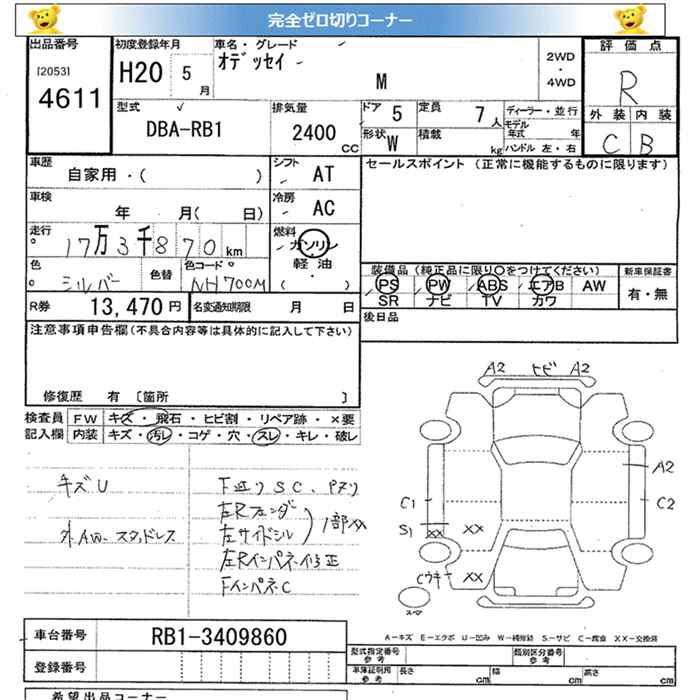 完全ゼロ切りコーナー
出品番号
[2053]
4611
初度登録年月
H20 5月
車名・グレード
オデッセイ
M
2WD
・
4WD
評価点
R
外装 内装
C B
型式
DBA-RB1
排気量
2400 cc
ドア 5
定員 7人
形状 W
積載 kg
ディーラー・並行
モデル年式 年
ハンドル 左・右
車歴
自家用・( )
シフト AT
車検
年 月( 日)
冷房 AC
走行
17万3千870 km
燃料
ガソリン
軽油
( )
色
シルバー
色替
色コード
NH700M
R券 13,470円
名変通知期限 月 日
セールスポイント (正常に機能するものに限ります)
装備品(純正品に限り○をつけてください)
PS PW ABS エアB AW
SR ナビ TV カワ
新車保証書
有・無
後日品
注意事項申告欄(不具合内容等は具体的に記入して下さい)
修復歴 有 [箇所 ]
検査員 FW キズ・飛石・ヒビ割・リペア跡・×要
記入欄 内装 キズ・汚レ・コゲ・穴・スレ・キレ・破レ
キズU
外AW、スタッドレス
下廻りSC、Pヌリ
左Rフェンダ
左サイドシル
1部分
左Rインパネ修正
FインパネC
A2 ヒビ A2
A2
C1
C2
S1
XX
XX
Cウキ
XX
スペア
A-キズ E-エクボ U-凹み W-補修跡 S-サビ C-腐食 XX-交換済
車台番号 RB1-3409860
登録番号
型式指定番号 参考
類別区分番号 参考
車庫証明用 参考
長さ cm
幅 cm
高さ cm
希望出品コーナー